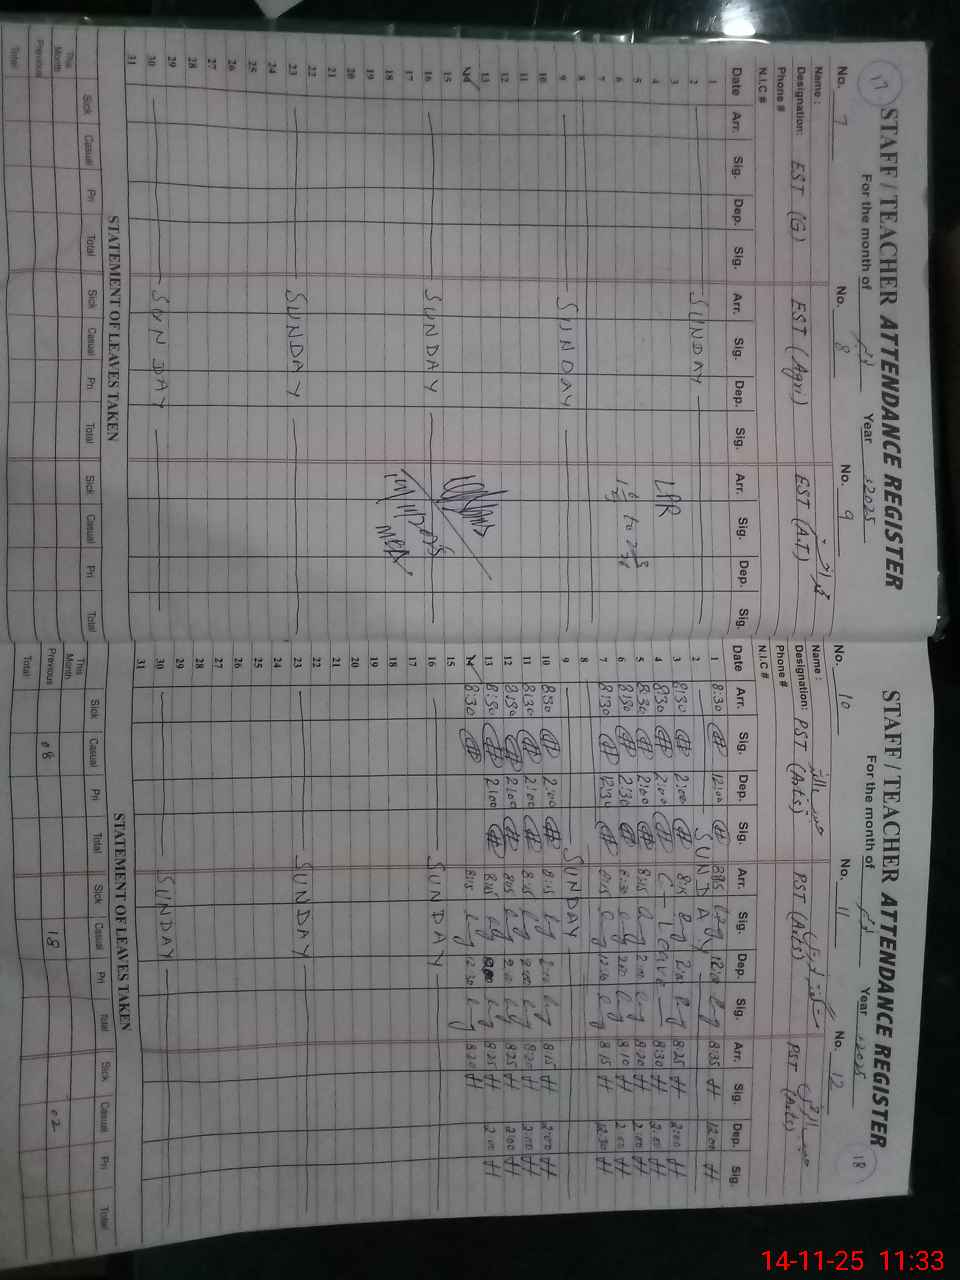 STAFF / TEACHER ATTENDANCE REGISTER
17
For the month of Year 2025
No. 7 No. 8 No. 9
Name :
Designation: EST (G) EST (Agri) EST (A.T)
Phone #
N.I.C #
Date Arr. Sig. Dep. Sig. Arr. Sig. Dep. Sig. Arr. Sig. Dep. Sig.
1
2 SUNDAY
3
4 LPR
5
6
7
8
9 SUNDAY
10
11
12
13
14
15
16 SUNDAY
17
18
19
20
21
22
23 SUNDAY
24
25
26
27
28
29
30 SUNDAY
31
STATEMENT OF LEAVES TAKEN
Sick Casual Pri Total Sick Casual Pri Total Sick Casual Pri Total
This Month
Previous
Total
STAFF / TEACHER ATTENDANCE REGISTER
18
For the month of Year 2025
No. 10 No. 11 No. 12
Name :
Designation: PST (Arts) PST (Arts) PST (Arts)
Phone #
N.I.C #
Date Arr. Sig. Dep. Sig. Arr. Sig. Dep. Sig. Arr. Sig. Dep. Sig.
1 8:30 12:00 8:15 12:00 8:35 12:00
2 SUNDAY
3 8:30 2:00 8:15 2:00 8:25 2:00
4 8:30 2:00 C-Leave 8:30 2:00
5 8:30 2:00 8:15 2:00 8:20 2:00
6 8:30 2:30 8:30 2:00 8:10 2:00
7 8:30 12:30 8:15 12:30 8:15 12:30
8
9 SUNDAY
10 8:30 2:00 8:15 2:00 8:15 2:00
11 8:30 2:00 8:15 2:00 8:20 2:00
12 8:30 2:00 8:15 2:00 8:25 2:00
13 8:30 2:00 8:15 8:25 2:00
14 8:30 8:15 12:30 8:20
15
16 SUNDAY
17
18
19
20
21
22
23 SUNDAY
24
25
26
27
28
29
30 SUNDAY
31
STATEMENT OF LEAVES TAKEN
Sick Casual Pri Total Sick Casual Pri Total Sick Casual Pri Total
This Month
Previous 08 18 02
Total
14-11-25 11:33